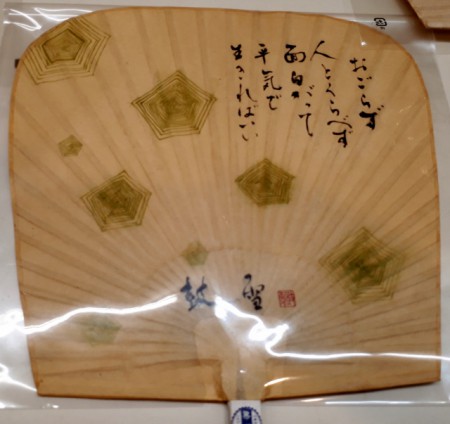 おごらず
人とくらべず
面白がって
平気で
生きればいい